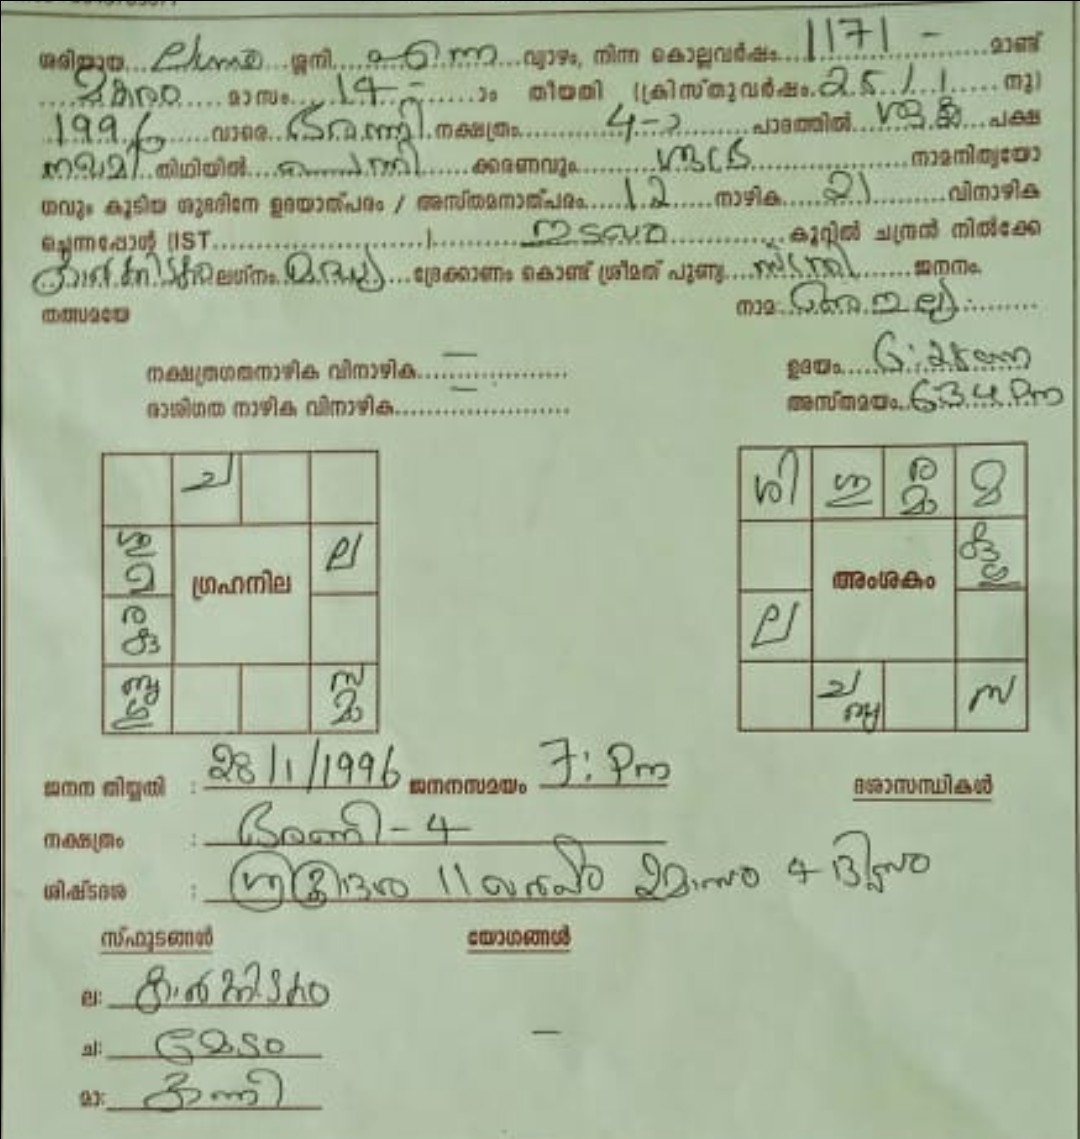 ശരിയായ ശനി വ്യാഴം, നിന്ന കൊല്ലവർഷം 1171 - മാണ്ട്
മകരം മാസം 14 - ാം തീയതി (ക്രിസ്തുവർഷം നു)
1996 വാരെ ഭരണി നക്ഷത്രം 4 പാദത്തിൽ ശുക്ല പക്ഷ
തിഥിയിൽ ക്കരണവും നാമനിത്യയോ
ഗവും കൂടിയ ശുഭദിനേ ഉദയാത്പരം / അസ്തമനാത്പരം 1.2 നാഴിക 21 വിനാഴിക
ചെന്നപ്പോൾ (IST ) ഇടവം കൂറ്റിൽ ചന്ദ്രൻ നിൽക്കേ
കർക്കിടകം ലഗ്നം മദ്ധ്യ ദ്രേക്കാണം കൊണ്ട് ശ്രീമത് പൂണ്യ ജനനം.
തത്സമയേ നാമ:
നക്ഷത്രഗതനാഴിക വിനാഴിക — ഉദയം
രാശിഗത നാഴിക വിനാഴിക — അസ്തമയം 6 34 Pm
ച ശി ശു ര മാ മ
ശു മ ല
ഗ്രഹനില അംശകം
ര കു ല
ബു ഗു സ മാ ച ബു സ
ജനന തിയ്യതി : 28/1/1996 ജനനസമയം 7: Pm ദശാസന്ധികൾ
നക്ഷത്രം : ഭരണി - 4
ശിഷ്ടദശ : 11 വർഷം 2 മാസം 4 ദിവസം
സ്ഫുടങ്ങൾ യോഗങ്ങൾ
ല: കർക്കിടകം
ച: മേടം —
മാ: കന്നി